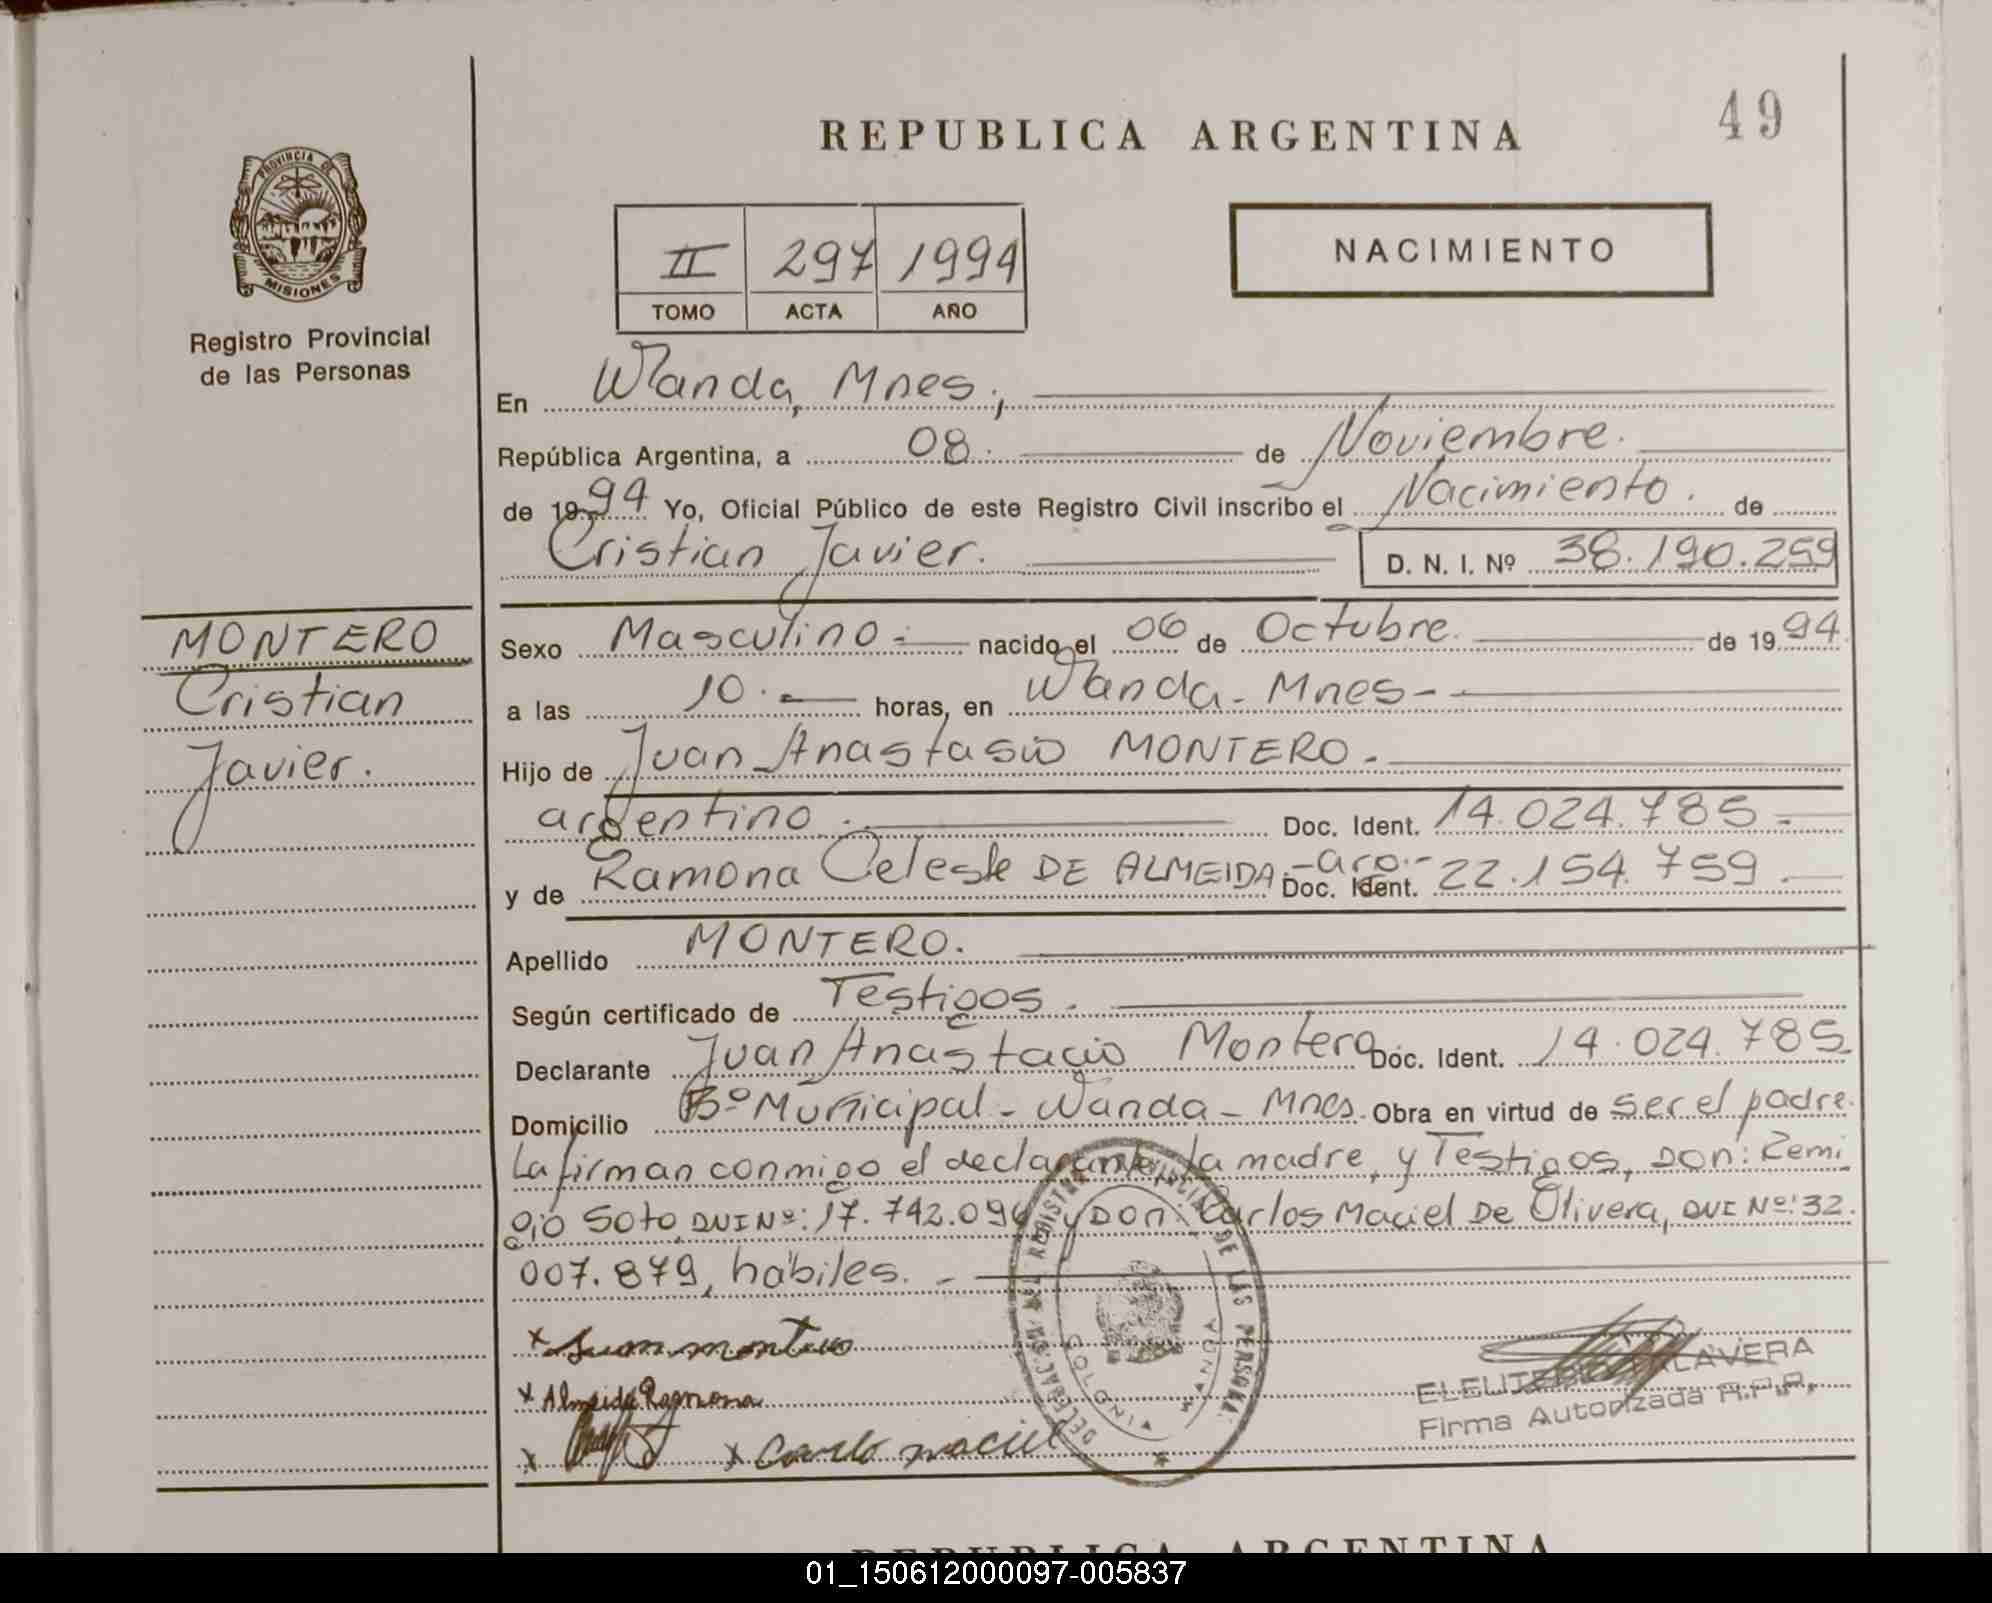 49
REPUBLICA ARGENTINA
PROVINCIA DE
MISIONES
Registro Provincial
de las Personas
II 297 1994
TOMO ACTA AÑO
NACIMIENTO
En Wanda, Mnes.,
República Argentina, a 08. de Noviembre.
de 1994 Yo, Oficial Público de este Registro Civil inscribo el Nacimiento. de
Cristian Javier. D. N. I. Nº 38.190.259
MONTERO
Cristian
Javier.
Sexo Masculino.- nacido el 06 de Octubre. de 1994.
a las 10.- horas, en Wanda - Mnes -
Hijo de Juan Anastasio MONTERO.-
argentino. Doc. Ident. 14.024.785-
y de Ramona Celeste DE ALMEIDA.-arg.- Doc. Ident. 22.154.759.
Apellido MONTERO.
Según certificado de Testigos.
Declarante Juan Anastacio Montero Doc. Ident. 14.024.785
Domicilio Bº Municipal - Wanda - Mnes. Obra en virtud de ser el padre.
La firman conmigo el declarante, la madre, y Testigos, Don: Remi
gio Soto, DNI Nº: 17.742.094 y Don: Carlos Maciel De Olivera, DNI Nº: 32.
007.879, habiles.-
x Juan montero
x Almeida Ramona
x x Carlo maciel
DELEGACION DEL REGISTRO PROVINCIAL DE LAS PERSONAS
COLONIA WANDA
ELEUTERIO TALAVERA
Firma Autorizada R.P.P.
REPUBLICA ARGENTINA
01_150612000097-005837